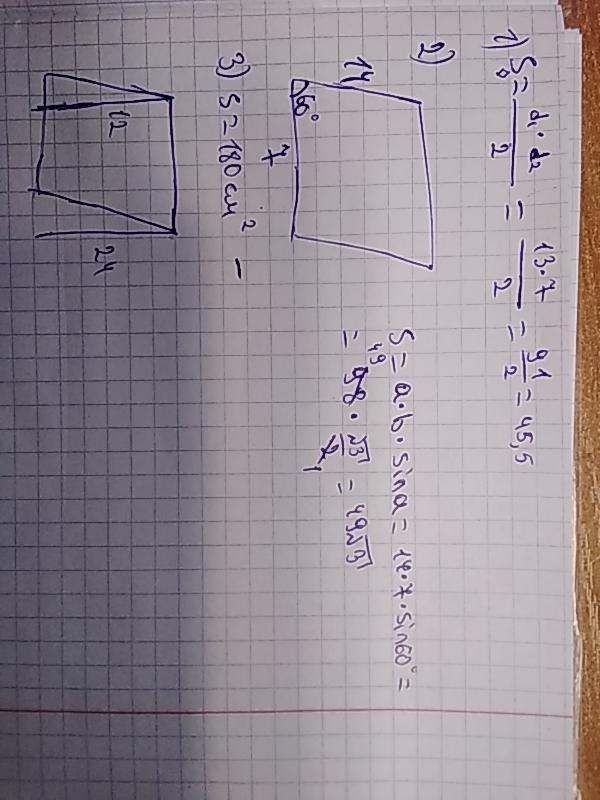 1) S = d₁·d₂ / 2 = 13·7 / 2 = 91/2 = 45,5
2)
14
60°
7
S = a·b·sinα = 14·7·sin60° =
= 98 49 · √3/2 1 = 49√3
3) S = 180 см² –
12
24